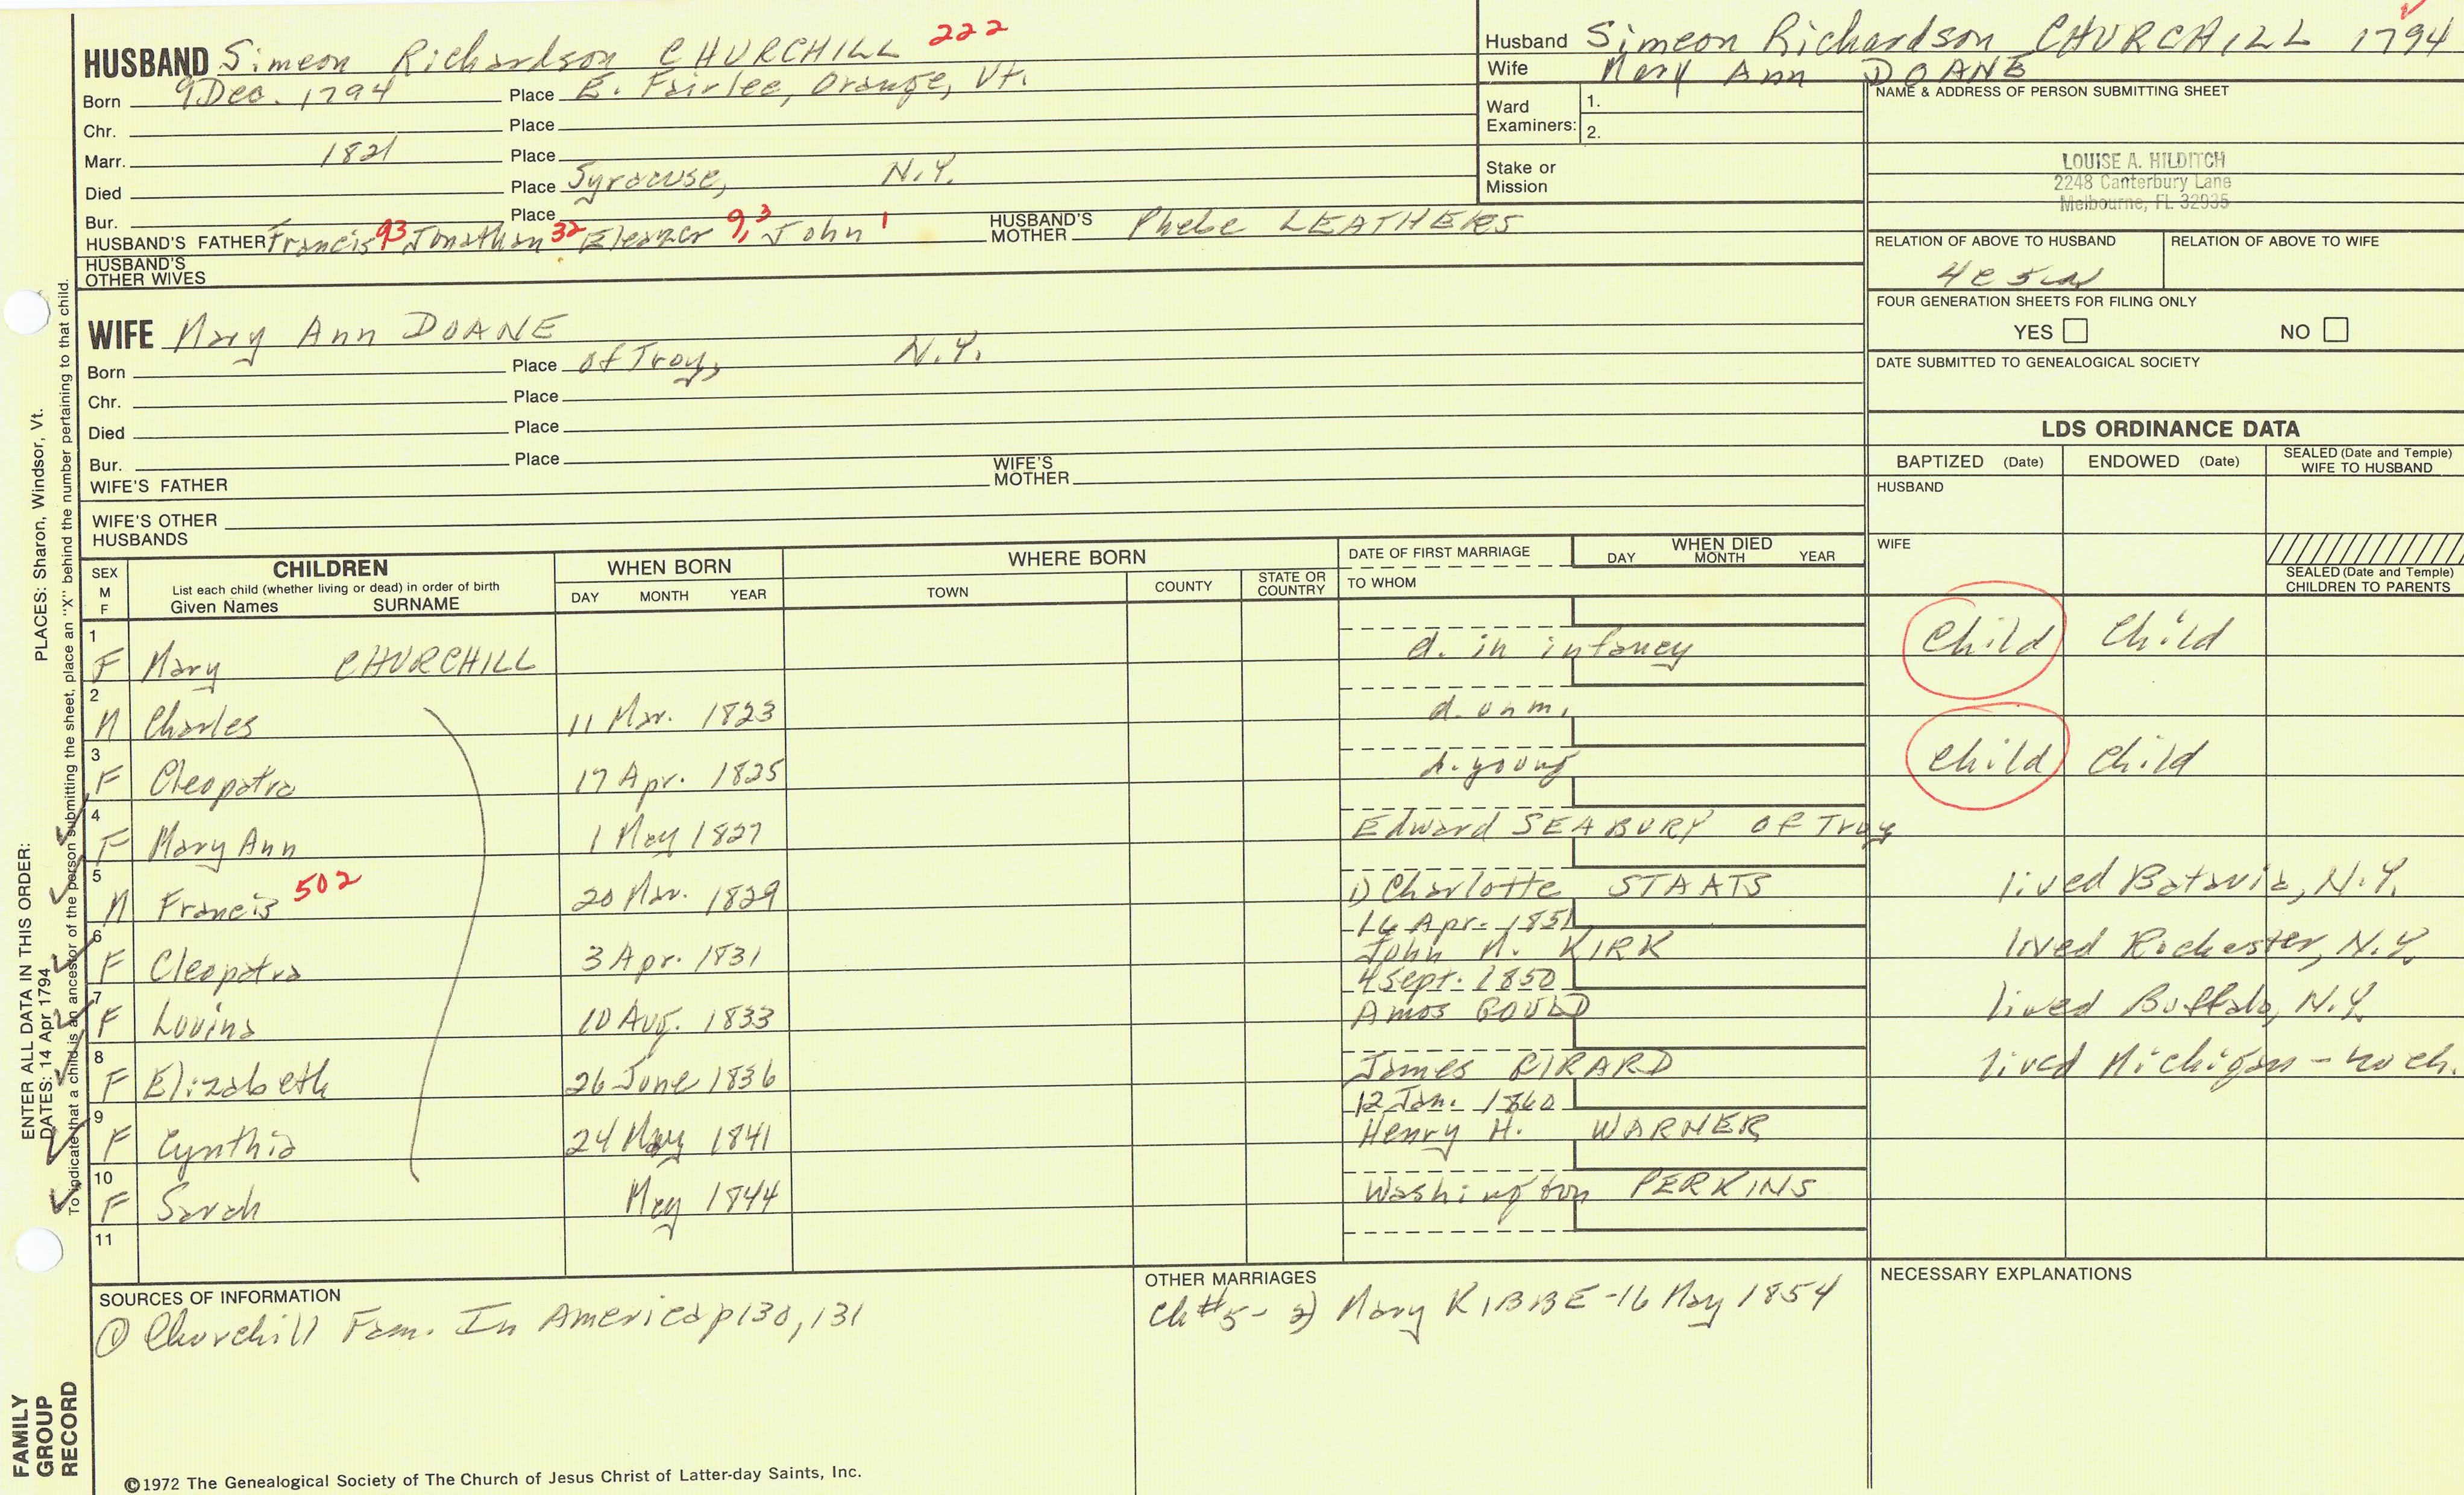 HUSBAND Simeon Richardson CHURCHILL 222
Born 9 Dec. 1794 Place E. Fairlee, Orange, Vt.
Chr. Place
Marr. 1821 Place
Died Place Syracuse, N.Y.
Bur. Place
HUSBAND'S FATHER Francis 93 Jonathan 32 Eleazer 9, 3 John 1 HUSBAND'S MOTHER Phebe LEATHERS
HUSBAND'S OTHER WIVES
WIFE Mary Ann DOANE
Born Place of Troy, N.Y.
Chr. Place
Died Place
Bur. Place
WIFE'S FATHER WIFE'S MOTHER
WIFE'S OTHER HUSBANDS
Husband Simeon Richardson CHURCHILL 1794
Wife Mary Ann DOANE
Ward Examiners: 1.
2.
Stake or Mission
NAME & ADDRESS OF PERSON SUBMITTING SHEET
LOUISE A. HILDITCH
2248 Canterbury Lane
Melbourne, FL 32935
RELATION OF ABOVE TO HUSBAND RELATION OF ABOVE TO WIFE
FOUR GENERATION SHEETS FOR FILING ONLY
YES NO
DATE SUBMITTED TO GENEALOGICAL SOCIETY
LDS ORDINANCE DATA
BAPTIZED (Date) ENDOWED (Date) SEALED (Date and Temple) WIFE TO HUSBAND
HUSBAND
WIFE
SEALED (Date and Temple) CHILDREN TO PARENTS
SEX M F CHILDREN WHEN BORN WHERE BORN DATE OF FIRST MARRIAGE WHEN DIED
List each child (whether living or dead) in order of birth
Given Names SURNAME DAY MONTH YEAR TOWN COUNTY STATE OR COUNTRY TO WHOM DAY MONTH YEAR
1 F Mary CHURCHILL d. in infancy Child Child
2 M Charles 11 Mar. 1823 d. unm.
3 F Cleopatra 17 Apr. 1825 d. young Child Child
4 F Mary Ann 1 May 1827 Edward SEABURY of Troy
5 M Francis 502 20 Mar. 1829 1) Charlotte STAATS lived Batavia, N.Y.
16 Apr. 1851
6 F Cleopatra 3 Apr. 1831 John M. KIRK lived Rochester, N.Y.
4 Sept. 1850
7 F Lovina 10 Aug. 1833 Amos GOULD lived Buffalo, N.Y.
8 F Elizabeth 26 June 1836 James GIRARD lived Michigan - no ch.
12 Jan. 1860
9 F Cynthia 24 May 1841 Henry H. WARNER
10 F Sarah May 1844 Washington PERKINS
11
SOURCES OF INFORMATION
① Churchill Fam. In America p130, 131
OTHER MARRIAGES
Ch #5 - 2) Mary KIBBE - 16 May 1854
NECESSARY EXPLANATIONS
©1972 The Genealogical Society of The Church of Jesus Christ of Latter-day Saints, Inc.
FAMILY GROUP RECORD
ENTER ALL DATA IN THIS ORDER:
DATES: 14 Apr 1794
PLACES: Sharon, Windsor, Vt.
To indicate that a child is an ancestor of the person submitting the sheet, place an "X" behind the number pertaining to that child.